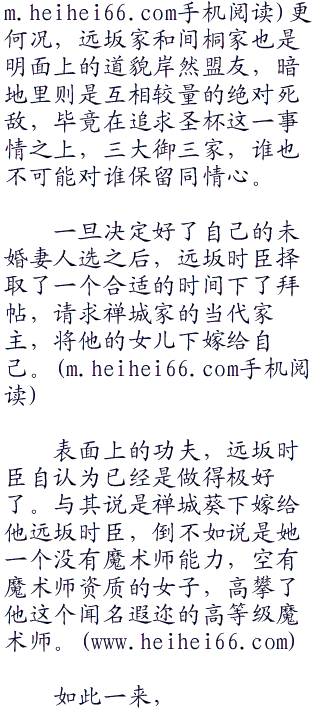 m.heihei66.com手机阅读)更
何况，远坂家和间桐家也是
明面上的道貌岸然盟友，暗
地里则是互相较量的绝对死
敌，毕竟在追求圣杯这一事
情之上，三大御三家，谁也
不可能对谁保留同情心。
一旦决定好了自己的未
婚妻人选之后，远坂时臣择
取了一个合适的时间下了拜
帖，请求禅城家的当代家
主，将他的女儿下嫁给自
己。(m.heihei66.com手机阅
读)
表面上的功夫，远坂时
臣自认为已经是做得极好
了。与其说是禅城葵下嫁给
他远坂时臣，倒不如说是她
一个没有魔术师能力，空有
魔术师资质的女子，高攀了
他这个闻名遐迩的高等级魔
术师。(www.heihei66.com)
如此一来，